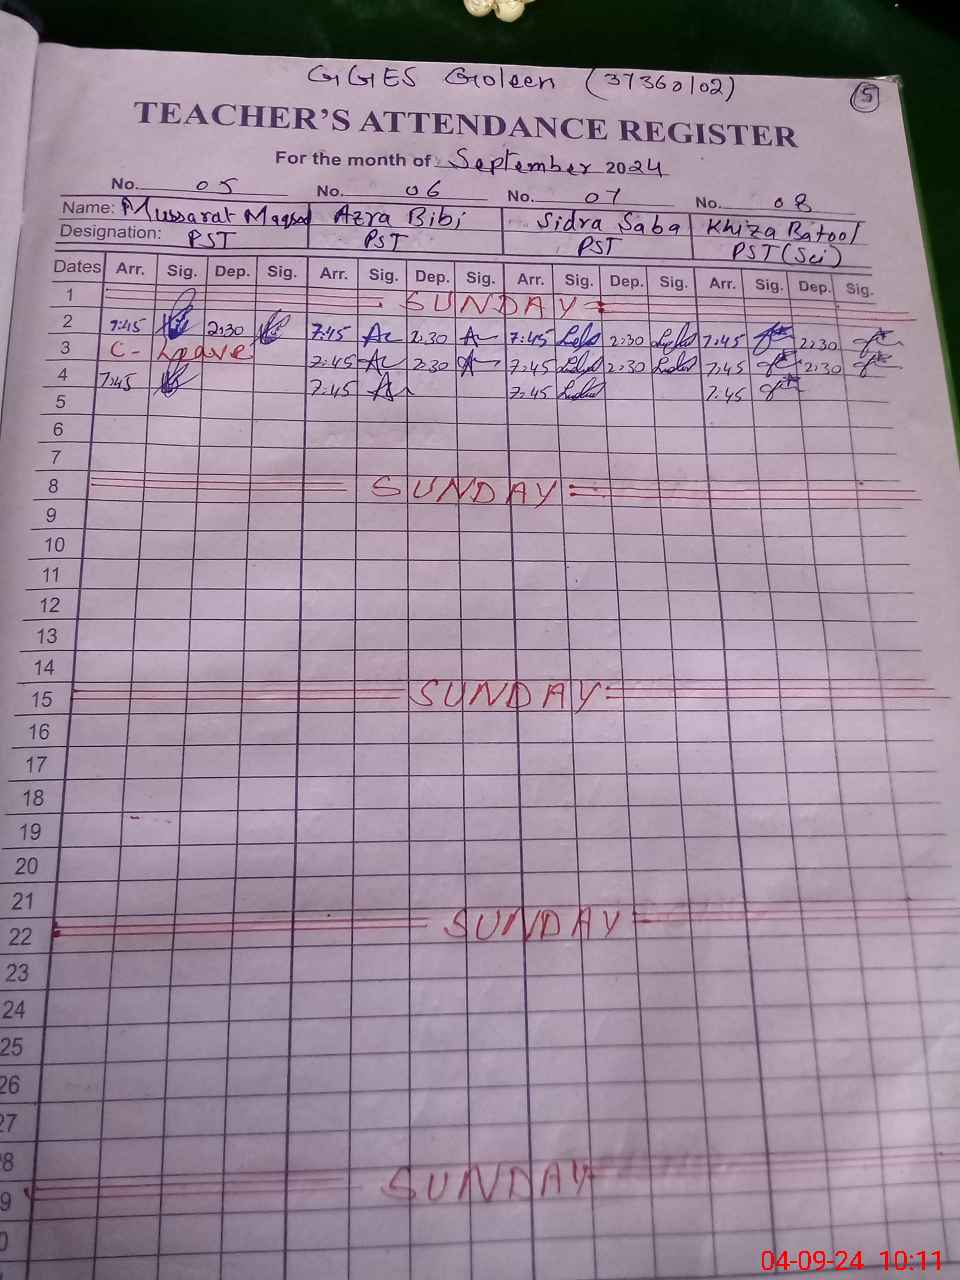 GGES Goleen (37360102)
5
TEACHER'S ATTENDANCE REGISTER
For the month of: September 2024
No. 05 No. 06 No. 07 No. 08
Name: Mussarat Maqsod Azra Bibi Sidra Saba Khiza Batool
Designation: PST PST PST PST (Sci)
Dates Arr. Sig. Dep. Sig. Arr. Sig. Dep. Sig. Arr. Sig. Dep. Sig. Arr. Sig. Dep. Sig.
1 SUNDAY
2 7:45 2:30 7:45 2:30 7:45 2:30 7:45 2:30
3 C- Leave 7:45 2:30 7:45 2:30 7:45 2:30
4 7:45 7:45 7:45 7:45
5
6
7
8 SUNDAY
9
10
11
12
13
14
15 SUNDAY
16
17
18
19
20
21
22 SUNDAY
23
24
25
26
27
8
9 SUNDAY
0
04-09-24 10:11